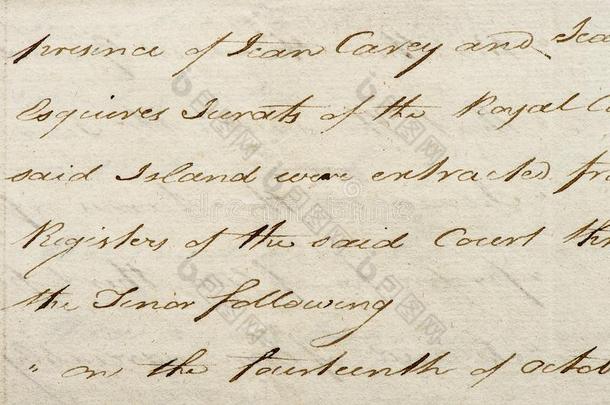 presence of Jean Carey and Jea
Esquires Jurats of the Royal C
said Island were extracted fro
Registers of the said Court th
the Tenor following
" on the fourteenth of octob